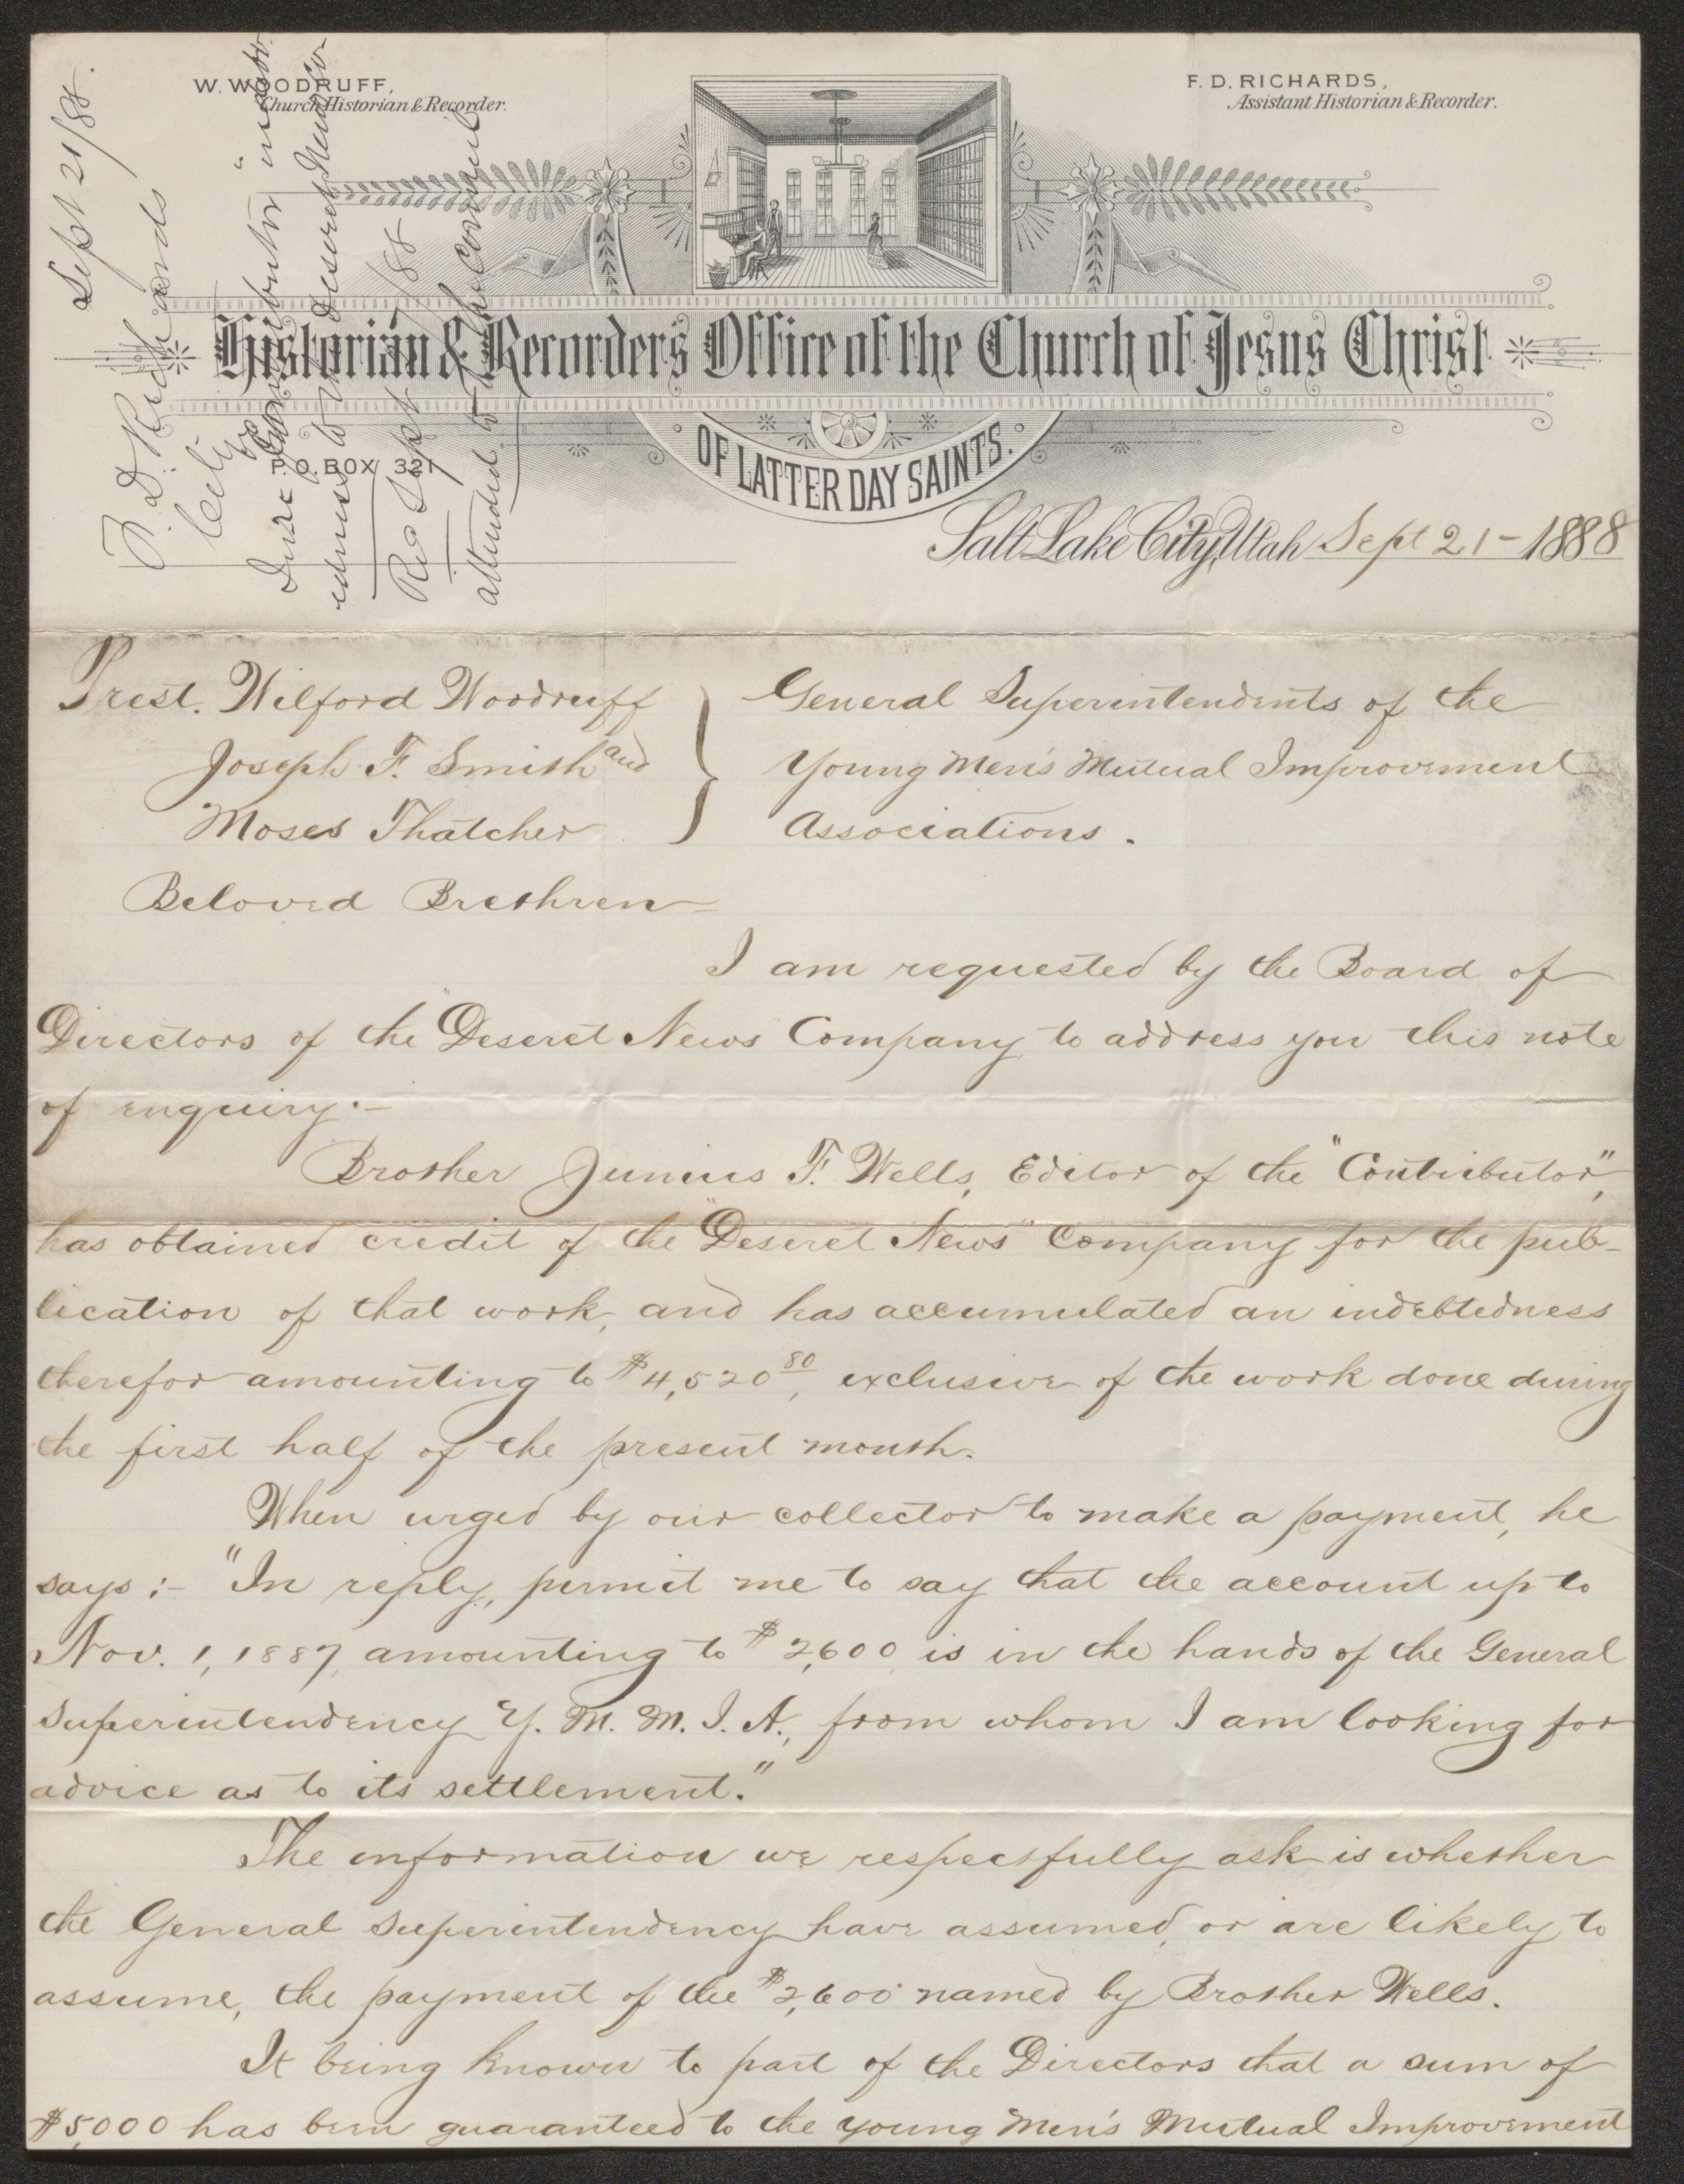 W. WOODRUFF,
Church Historian & Recorder.
F. D. RICHARDS,
Assistant Historian & Recorder.
Historian & Recorder's Office of the Church of Jesus Christ
OF LATTER DAY SAINTS.
P. O. BOX 321
Salt Lake City, Utah Sept 21 - 1888
Sept 21/88.
F. D. Richards
City
In re "Contributor" indebt-
edness to the Deseret News Co
Rec Sept /88
attended to the Council
Prest. Wilford Woodruff
Joseph F. Smith and
Moses Thatcher
General Superintendents of the
Young Men's Mutual Improvement
Associations.
Beloved Brethren—
I am requested by the Board of
Directors of the "Deseret News" Company to address you this note
of enquiry:—
Brother Junius F. Wells, Editor of the "Contributor",
has obtained credit of the "Deseret News" Company for the pub-
lication of that work, and has accumulated an indebtedness
therefor amounting to $4,520 80, exclusive of the work done during
the first half of the present month.
When urged by our collector to make a payment, he
says:— "In reply, permit me to say that the account up to
Nov. 1, 1887, amounting to $2,600, is in the hands of the General
Superintendency Y. M. M. I. A., from whom I am looking for
advice as to its settlement."
The information we respectfully ask is whether
the General Superintendency have assumed, or are likely to
assume, the payment of the $2,600 named by Brother Wells.
It being known to part of the Directors that a sum of
$5,000 has been guaranteed to the Young Men's Mutual Improvement